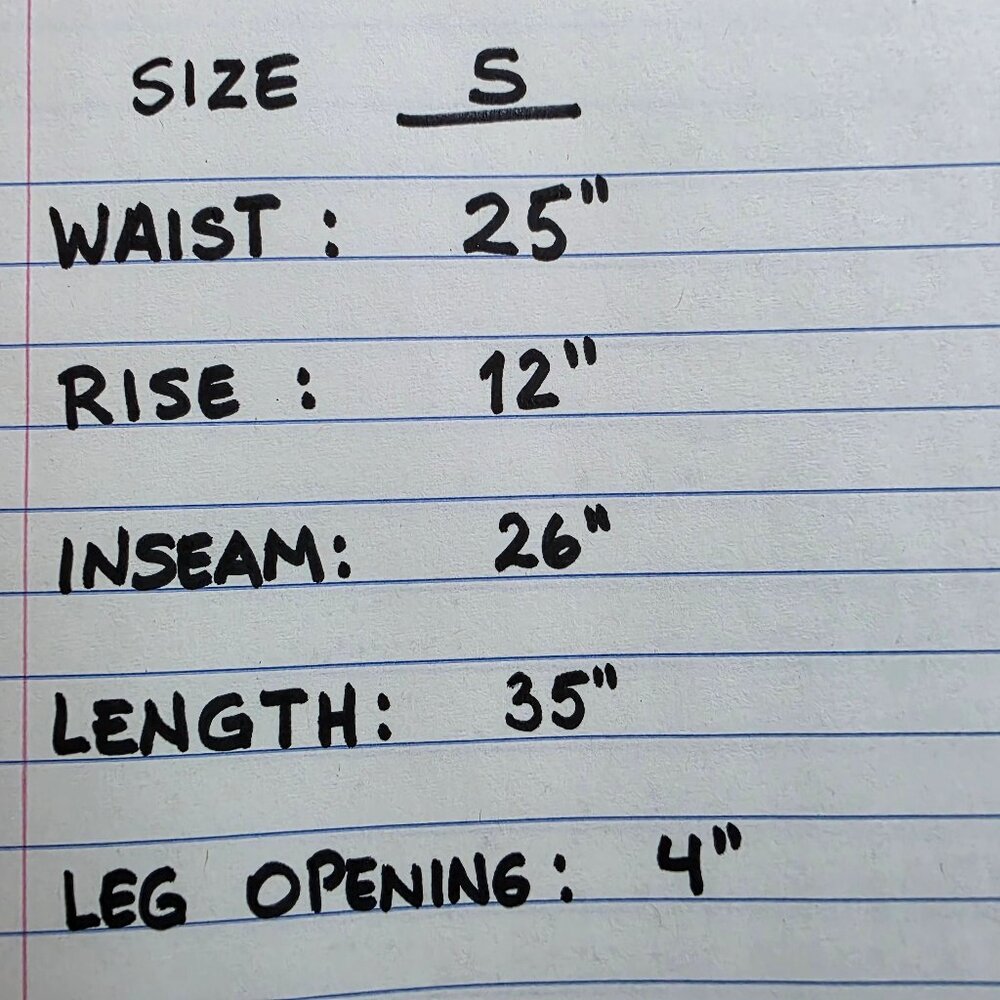 SIZE S
WAIST : 25"
RISE : 12"
INSEAM: 26"
LENGTH: 35"
LEG OPENING: 4"